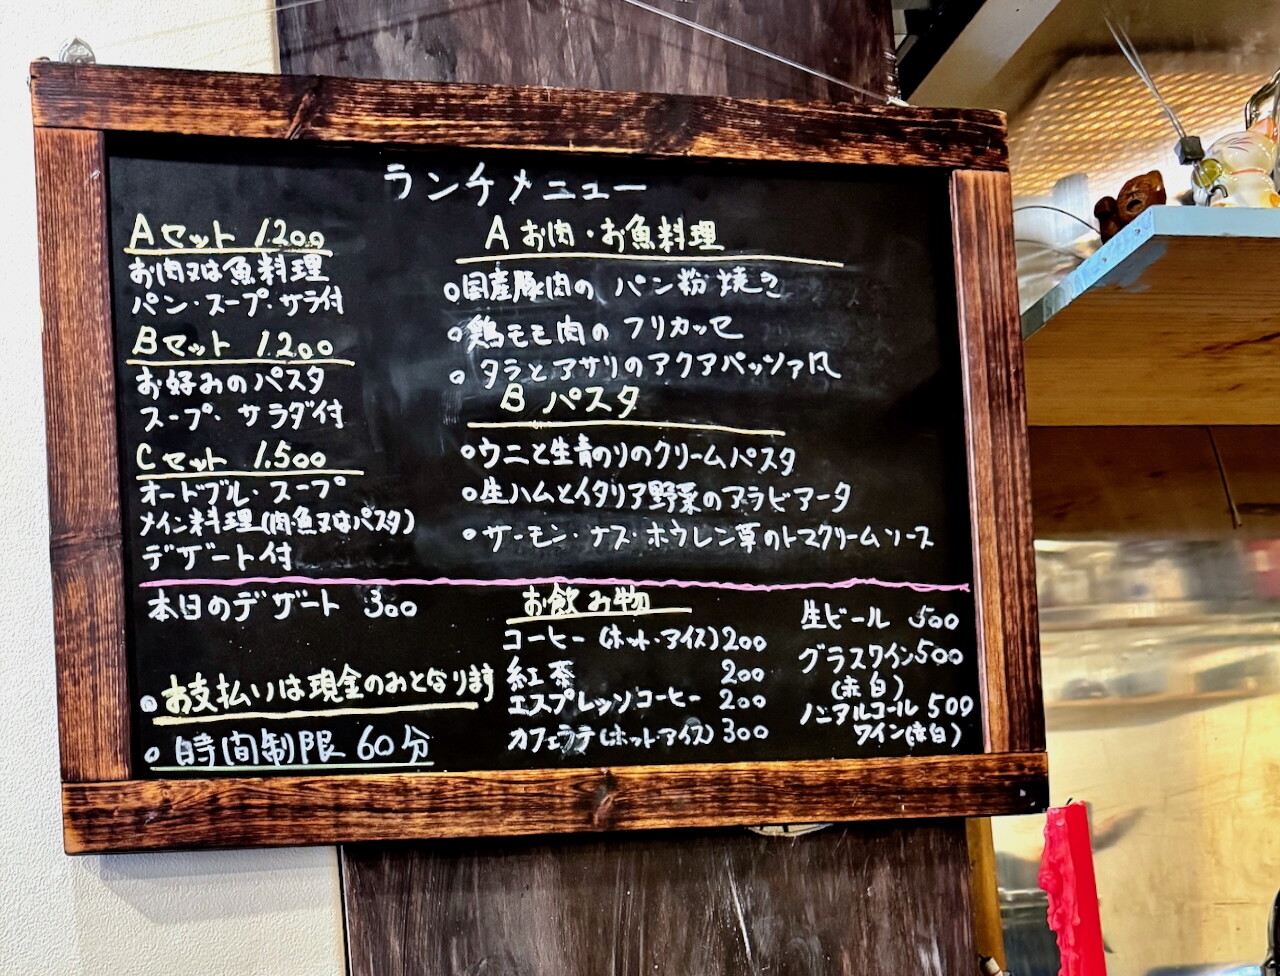 ランチメニュー
Aセット 1.200
お肉又は魚料理
パン・スープ・サラ付
Bセット 1.200
お好みのパスタ
スープ・サラダ付
Cセット 1.500
オードブル・スープ
メイン料理(肉魚又はパスタ)
デザート付
A お肉・お魚料理
○国産豚肉の パン粉焼き
○鶏モモ肉の フリカッセ
○タラとアサリのアクアパッツァ風
B パスタ
○ウニと生青のりのクリームパスタ
○生ハムとイタリア野菜のアラビアータ
○サーモン・ナス・ホウレン草のトマクリームソース
本日のデザート 300
○お支払いは現金のみとなります
○時間制限 60分
お飲み物
コーヒー(ホット・アイス)200
紅茶 200
エスプレッソコーヒー 200
カフェラテ(ホットアイス)300
生ビール 500
グラスワイン500
(赤白)
ノンアルコール 500
ワイン(赤白)